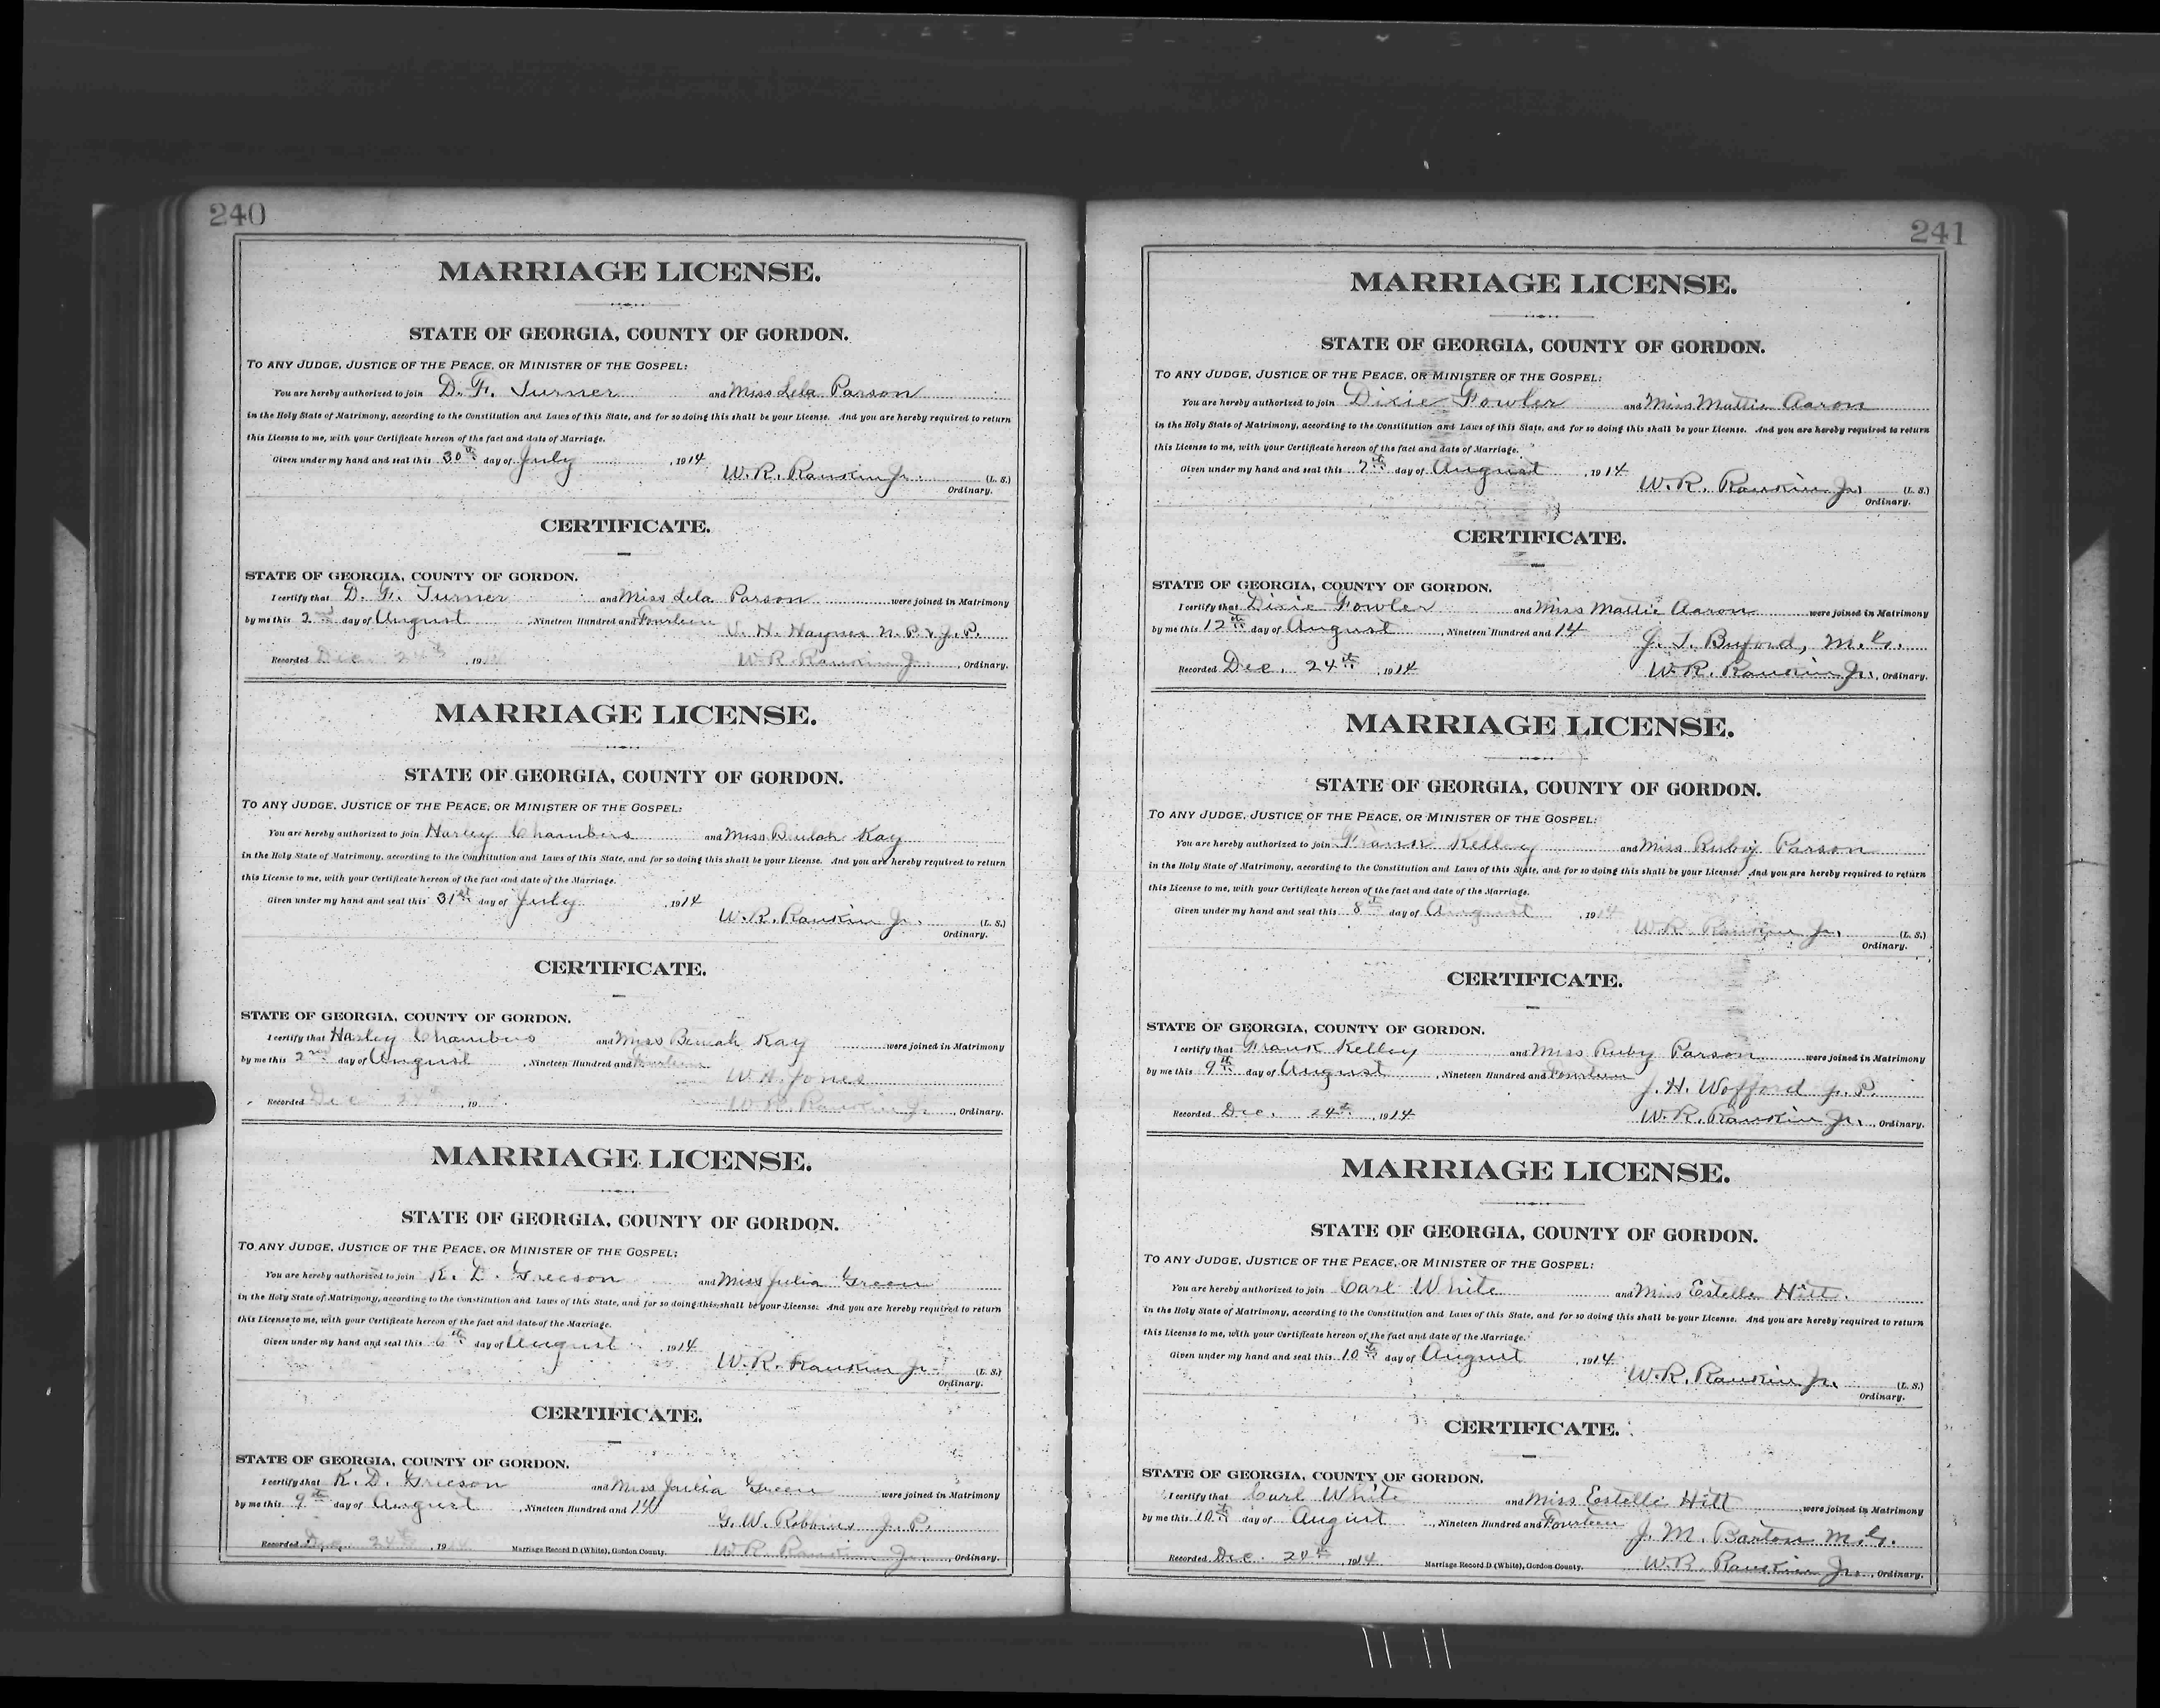 240
MARRIAGE LICENSE.
STATE OF GEORGIA, COUNTY OF GORDON.
TO ANY JUDGE, JUSTICE OF THE PEACE, OR MINISTER OF THE GOSPEL:
You are hereby authorized to join D. F. Turner and Miss Lela Parson
in the Holy State of Matrimony, according to the Constitution and Laws of this State, and for so doing this shall be your License. And you are hereby required to return
this License to me, with your Certificate hereon of the fact and date of Marriage.
Given under my hand and seal this 30th day of July, 1914
W. R. Rankin Jr. (L. S.)
Ordinary.
CERTIFICATE.
STATE OF GEORGIA, COUNTY OF GORDON.
I certify that D. F. Turner and Miss Lela Parson were joined in Matrimony
by me this 2nd day of August, Nineteen Hundred and Fourteen
H. Haynes N. P. & J. P.
Recorded Dec. 24th, 1914 W. R. Rankin Jr., Ordinary.
MARRIAGE LICENSE.
STATE OF GEORGIA, COUNTY OF GORDON.
TO ANY JUDGE, JUSTICE OF THE PEACE, OR MINISTER OF THE GOSPEL:
You are hereby authorized to join Harley Chambers and Miss Beulah Kay
in the Holy State of Matrimony, according to the Constitution and Laws of this State, and for so doing this shall be your License. And you are hereby required to return
this License to me, with your Certificate hereon of the fact and date of the Marriage.
Given under my hand and seal this 31st day of July, 1914
W. R. Rankin Jr. (L. S.)
Ordinary.
CERTIFICATE.
STATE OF GEORGIA, COUNTY OF GORDON.
I certify that Harley Chambers and Miss Beulah Kay were joined in Matrimony
by me this 2nd day of August, Nineteen Hundred and Fourteen
W. A. Jones
Recorded Dec 24th, 19 W. R. Rankin Jr., Ordinary.
MARRIAGE LICENSE.
STATE OF GEORGIA, COUNTY OF GORDON.
TO ANY JUDGE, JUSTICE OF THE PEACE, OR MINISTER OF THE GOSPEL:
You are hereby authorized to join R. D. Greeson and Miss Julia Green
in the Holy State of Matrimony, according to the Constitution and Laws of this State, and for so doing this shall be your License. And you are hereby required to return
this License to me, with your Certificate hereon of the fact and date of the Marriage.
Given under my hand and seal this 6th day of August, 1914
W. R. Rankin Jr. (L. S.)
Ordinary.
CERTIFICATE.
STATE OF GEORGIA, COUNTY OF GORDON.
I certify that R. D. Greeson and Miss Julia Green were joined in Matrimony
by me this 9th day of August, Nineteen Hundred and 14
G. W. Robbins J. P.
Recorded Dec. 24th, 1914 Marriage Record D (White), Gordon County. W. R. Rankin Jr., Ordinary.
241
MARRIAGE LICENSE.
STATE OF GEORGIA, COUNTY OF GORDON.
TO ANY JUDGE, JUSTICE OF THE PEACE, OR MINISTER OF THE GOSPEL:
You are hereby authorized to join Dixie Fowler and Miss Mattie Aaron
in the Holy State of Matrimony, according to the Constitution and Laws of this State, and for so doing this shall be your License. And you are hereby required to return
this License to me, with your Certificate hereon of the fact and date of Marriage.
Given under my hand and seal this 7th day of August, 1914
W. R. Rankin Jr. (L. S.)
Ordinary.
CERTIFICATE.
STATE OF GEORGIA, COUNTY OF GORDON.
I certify that Dixie Fowler and Miss Mattie Aaron were joined in Matrimony
by me this 12th day of August, Nineteen Hundred and 14
J. T. Buford, M. G.
Recorded Dec. 24th, 1914 W. R. Rankin Jr., Ordinary.
MARRIAGE LICENSE.
STATE OF GEORGIA, COUNTY OF GORDON.
TO ANY JUDGE, JUSTICE OF THE PEACE, OR MINISTER OF THE GOSPEL:
You are hereby authorized to join Frank Kelley and Miss Ruby Parson
in the Holy State of Matrimony, according to the Constitution and Laws of this State, and for so doing this shall be your License. And you are hereby required to return
this License to me, with your Certificate hereon of the fact and date of the Marriage.
Given under my hand and seal this 8th day of August, 1914
W. R. Rankin Jr. (L. S.)
Ordinary.
CERTIFICATE.
STATE OF GEORGIA, COUNTY OF GORDON.
I certify that Frank Kelley and Miss Ruby Parson were joined in Matrimony
by me this 9th day of August, Nineteen Hundred and Fourteen
J. H. Wofford J. P.
Recorded Dec. 24th, 1914 W. R. Rankin Jr., Ordinary.
MARRIAGE LICENSE.
STATE OF GEORGIA, COUNTY OF GORDON.
TO ANY JUDGE, JUSTICE OF THE PEACE, OR MINISTER OF THE GOSPEL:
You are hereby authorized to join Carl White and Miss Estelle Hitt.
in the Holy State of Matrimony, according to the Constitution and Laws of this State, and for so doing this shall be your License. And you are hereby required to return
this License to me, with your Certificate hereon of the fact and date of the Marriage.
Given under my hand and seal this 10th day of August, 1914
W. R. Rankin Jr. (L. S.)
Ordinary.
CERTIFICATE.
STATE OF GEORGIA, COUNTY OF GORDON.
I certify that Carl White and Miss Estelle Hitt were joined in Matrimony
by me this 10th day of August, Nineteen Hundred and Fourteen
J. M. Barton M. G.
Recorded Dec. 24th, 1914 Marriage Record D (White), Gordon County. W. R. Rankin Jr., Ordinary.